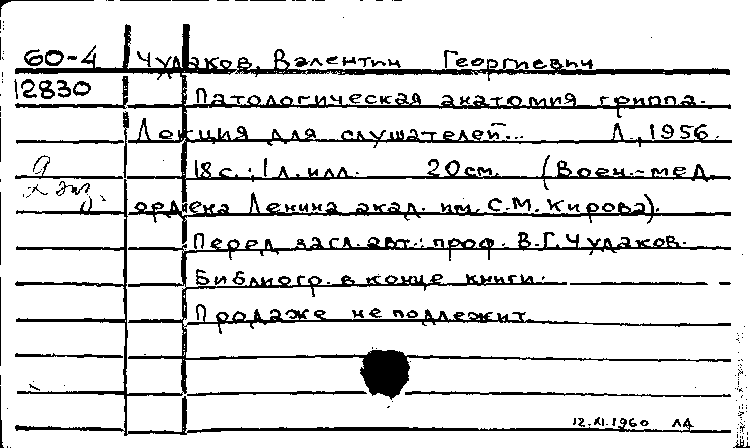 60-4 Чудаков, Валентин Георгиевич
12830 Патологическая анатомия гриппа.
Лекция для слушателей... Л., 1956.
18 с.; 1 л. илл. 20 см. (Воен.-мед.
ордена Ленина акад. им. С.М. Кирова).
Перед загл. авт.: проф. В.Г. Чудаков.
Библиогр. в конце книги.
Продаже не подлежит.
12.XI.1960 ЛА